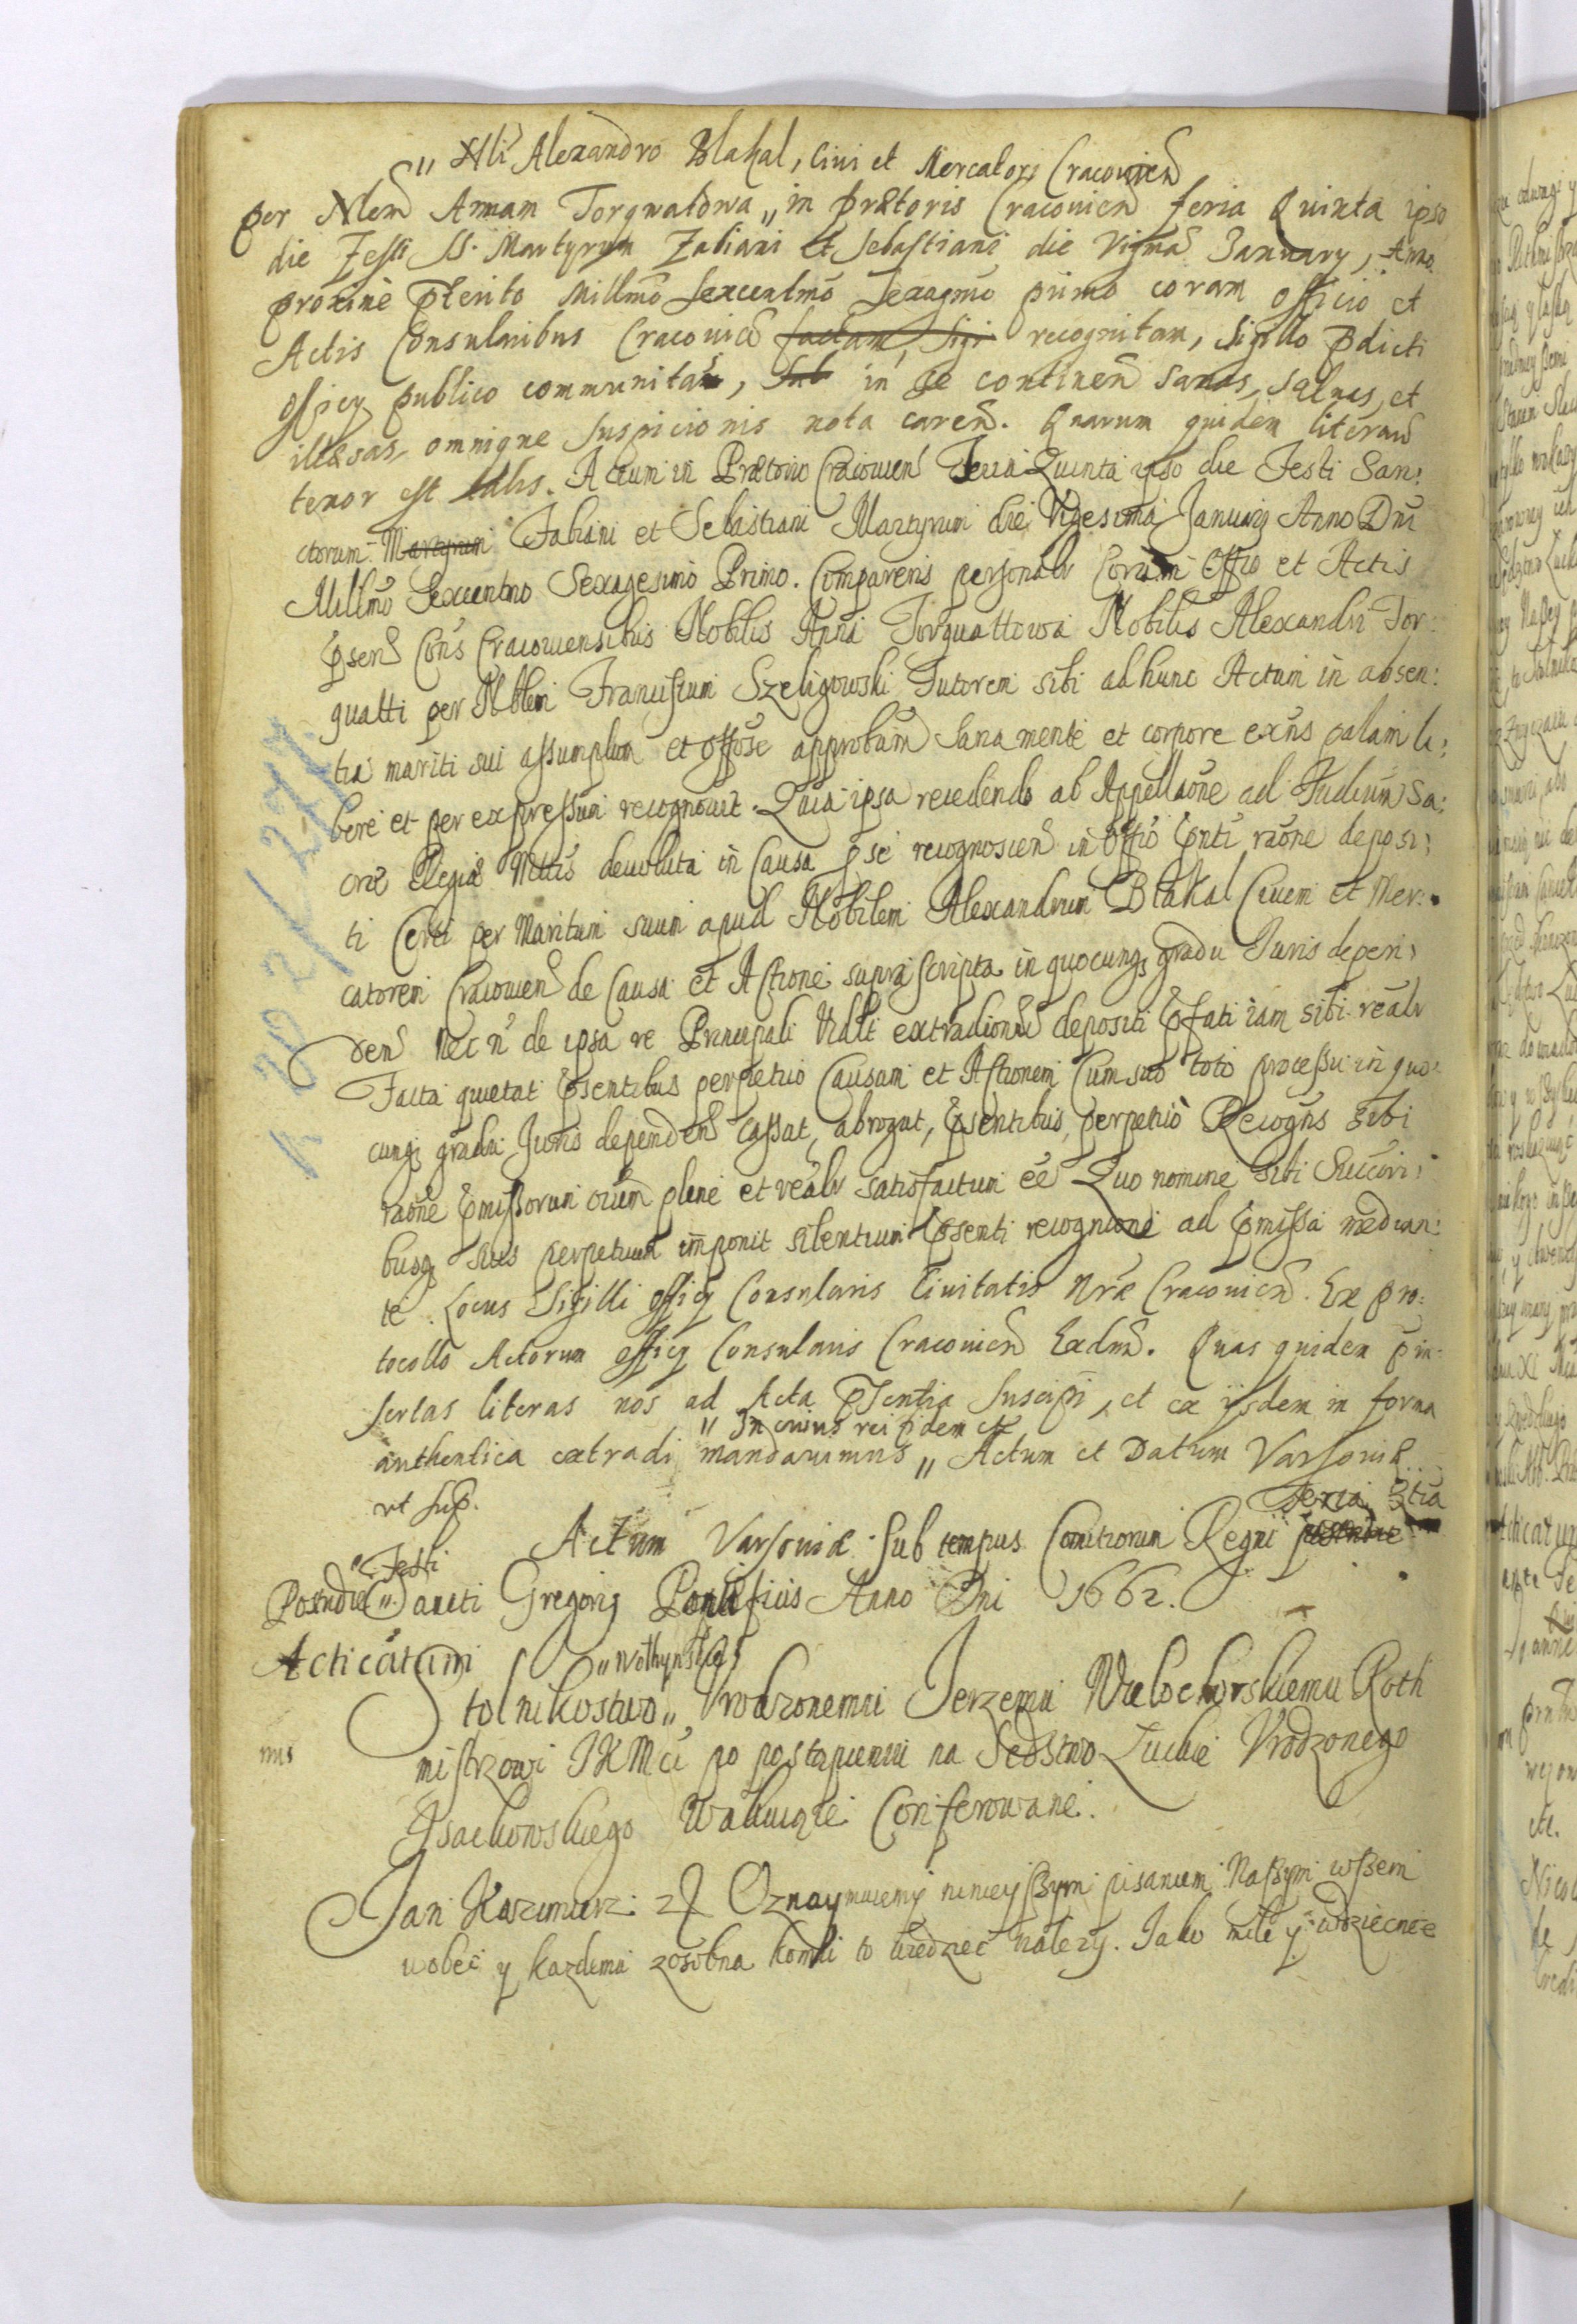 " Nli Alexandro Blakal, Civi et Mercatori Cracovien
per Nlem Annam Torqwatowa „ in prætorio Cracovien feria Quinta ipso
die Festi SS. Martyrum Fabiani et Sebastiani die Vigma January, Anno
proxime pterito Millmo Sexcentmo Sexagmo primo coram officio et
Actis Consularibus Cracovien factam, Sigi recognitam, Sigillo pdicti
officy publico communitas, Sub in se continen sanas, salvas, et
illæsas, omnique suspicionis nota caren. Quarum quidem literarum
tenor est talis. Actum in Prætorio Cracovien Feria Quinta ipso die Festi San:
ctorum Martyrum Fabiani et Sebastiani Martyrum die Vigesima January Anno Dni
Millmo Sexcentmo Sexagesimo Primo. Comparens personalr Coram Offio et Actis
psen Cons Cracoviensibus Nobilis Anna Torquattowa Nobilis Alexandri Tor:
quatti per Nblem Franciscum Szeligowski Tutorem sibi ad hunc Actum in absen:
tia mariti sui assumptum et offose approbatum Sana mente et corpore exns palam li:
bere et per expressum recognovit. Quia ipsa recedendo ab Appellaone ad Iudicium Sa:
cræ Regiæ Mttis devoluta in Causa pse recognoscen in Offio pnti raone deposi:
ti Certi per Maritum suum apud Nobilem Alexandrum Blakal Civem et Mer:
catorem Cracovien de Causa et Actione supra scripta in quocunq gradu Iuris depen:
den nec n de ipsa re Principali Vidlt extradionis depositi pfati iam sibi realr
Facta quietat psentibus perpetuo Causam et Actionem Cum suo toto processu in quo:
cunq gradu Iuris dependen cassat, abrogat, psentibus, perpetuo Recogns sibi
raone pmissorum oium plene et realr satisfactum ee Quo nomine sibi Succori:
busq suis perpetuum imponit silentium psenti recognione ad pmissa median:
te. Locus Sigilli officy Consularis Civitatis Nræ Cracovien. Ex pro:
tocollo Actorum officy Consularis Cracovien Extm. Quas quidem pin:
sertas literas nos ad Acta psentia Suscipi, et ex ijsdem in forma
" In cuius rei fidem etc
authentica extradi mandavimus „ Actum et Datum Varsoviæ
ut sup.
Feria 3tia
Actum Varsoviæ Sub tempus Comitiorum Regni
" Festi
Postridie „. Sancti Gregorij Pontificis Anno Dni 1662.
Acticatum
" Wołhynskie
Stolnikostwo „ Vrodzonemu Jerzemu Wielochorskiemu Roth
mistrzowi JKMci po postąpieniu na Sędstwo Łuckie Vrodzonego
Isaikowskiego Wakuiące Conferowane.
Jan Kazimierz etc Oznaymuiemy ninieyszym pisaniem Naszym wszem
wobec y kazdemu zosobna komu to wiedziec nalezy. Jako mile y wdziecznie